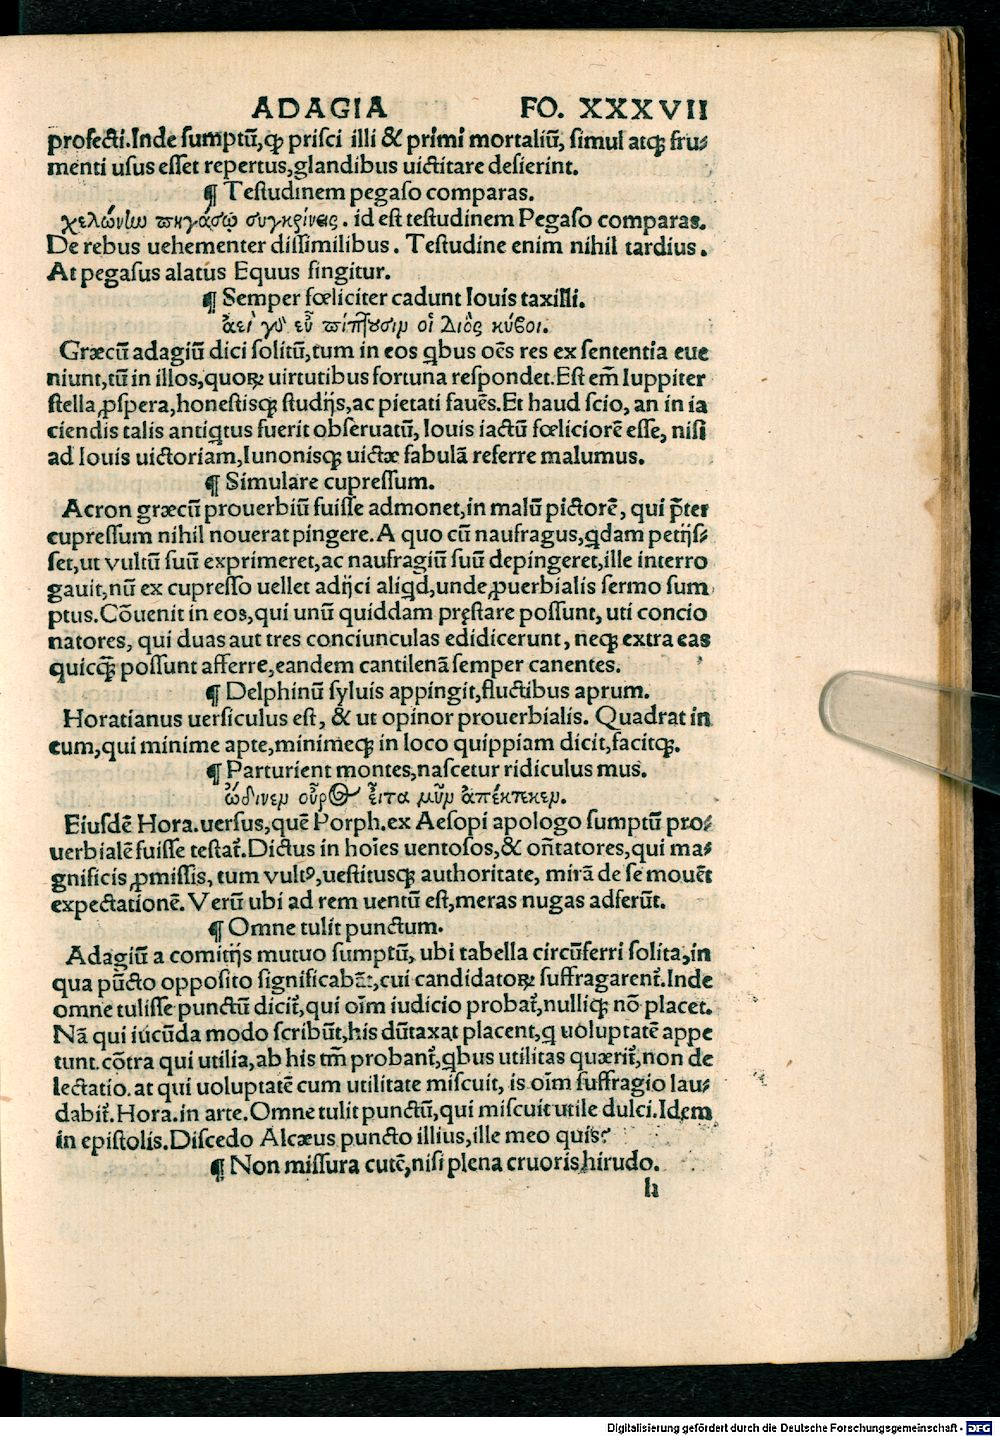 ADAGIA FO. XXXVII
profecti.Inde sumptū,ꝙ prisci illi & primi mortaliū, simul atqꝫ fru⸗
menti usus esset repertus,glandibus uictitare desierint.
¶ Testudinem pegaso comparas.
χελώνῃ πηγάσῳ συγκρίνεις. id est testudinem Pegaso comparas.
De rebus uehementer dissimilibus. Testudine enim nihil tardius.
At pegasus alatus Equus fingitur.
¶ Semper fœliciter cadunt Iouis taxilli.
ἀεὶ γὸ εὖ πίπτουσιμ οἱ Διὸς κύβοι.
Græcū adagiū dici solitū,tum in eos ꝗbus oēs res ex sententia eue
niunt,tū in illos,quoꝝ uirtutibus fortuna respondet.Est em̄ Iuppiter
stella ꝓspera,honestisqꝫ studijs,ac pietati fauēs.Et haud scio, an in ia
ciendis talis antiꝗtus fuerit obseruatū, Iouis iactū fœliciorē esse, nisi
ad Iouis uictoriam,Iunonisqꝫ uictæ fabulā referre malumus.
¶ Simulare cupressum.
Acron græcū prouerbiū fuisse admonet,in malū pictorē, qui p̄ter
cupressum nihil nouerat pingere.A quo cū naufragus,ꝗdam petijs⸗
set,ut vultū suū exprimeret,ac naufragiū suū depingeret,ille interro
gauit,nū ex cupresso uellet adijci aliꝗd,unde ꝓuerbialis sermo sum
ptus.Cōuenit in eos,qui unū quiddam pręstare possunt, uti concio
natores, qui duas aut tres conciunculas edidicerunt, neqꝫ extra eas
quicꝗ̄ꝫ possunt afferre,eandem cantilenā semper canentes.
¶ Delphinū syluis appingit,fluctibus aprum.
Horatianus uersiculus est, & ut opinor prouerbialis. Quadrat in
eum,qui minime apte,minimeqꝫ in loco quippiam dicit,facitqꝫ.
¶ Parturient montes,nascetur ridiculus mus.
ὤδινεμ οὖρος εἶτα μῦμ ἀπέκτεκεμ.
Eiusdē Hora.uersus,quē Porph.ex Aesopi apologo sumptū pro⸗
uerbialē fuisse testat᷑.Dictus in hoīes uentosos,& on̄tatores,qui ma⸗
gnificis ꝓmissis, tum vultꝰ,uestitusqꝫ authoritate, mirā de se mouēt
expectationē.Verū ubi ad rem uentū est,meras nugas adferūt.
¶ Omne tulit punctum.
Adagiū a comitijs mutuo sumptū, ubi tabella circūferri solita,in
qua pūcto opposito significabāt,cui candidatoꝝ suffragarent᷑.Inde
omne tulisse punctū dicit᷑,qui oīm iudicio probat᷑,nulliqꝫ nō placet.
Nā qui iucūda modo scribūt,his dūtaxat placent,ꝗ uoluptatē appe
tunt.cōtra qui utilia,ab his tm̄ probant᷑,ꝗbus utilitas quærit᷑,non de
lectatio.at qui uoluptatē cum utilitate miscuit, is oīm suffragio lau⸗
dabit᷑.Hora.in arte.Omne tulit punctū,qui miscuit utile dulci.Idem
in epistolis.Discedo Alcæus puncto illius,ille meo quis?
¶ Non missura cutē,nisi plena cruoris hirudo.
h
Digitalisierung gefördert durch die Deutsche Forschungsgemeinschaft - DFG